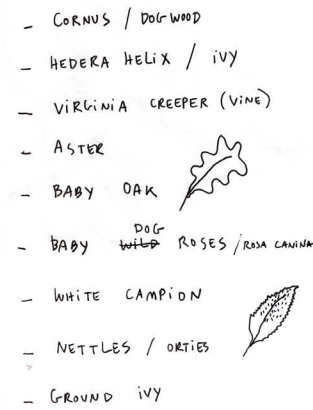 - CORNUS / DOGWOOD
- HEDERA HELIX / IVY
- VIRGINIA CREEPER (VINE)
- ASTER
- BABY OAK
- BABY WILD DOG ROSES / ROSA CANINA
- WHITE CAMPION
- NETTLES / ORTIES
- GROUND IVY